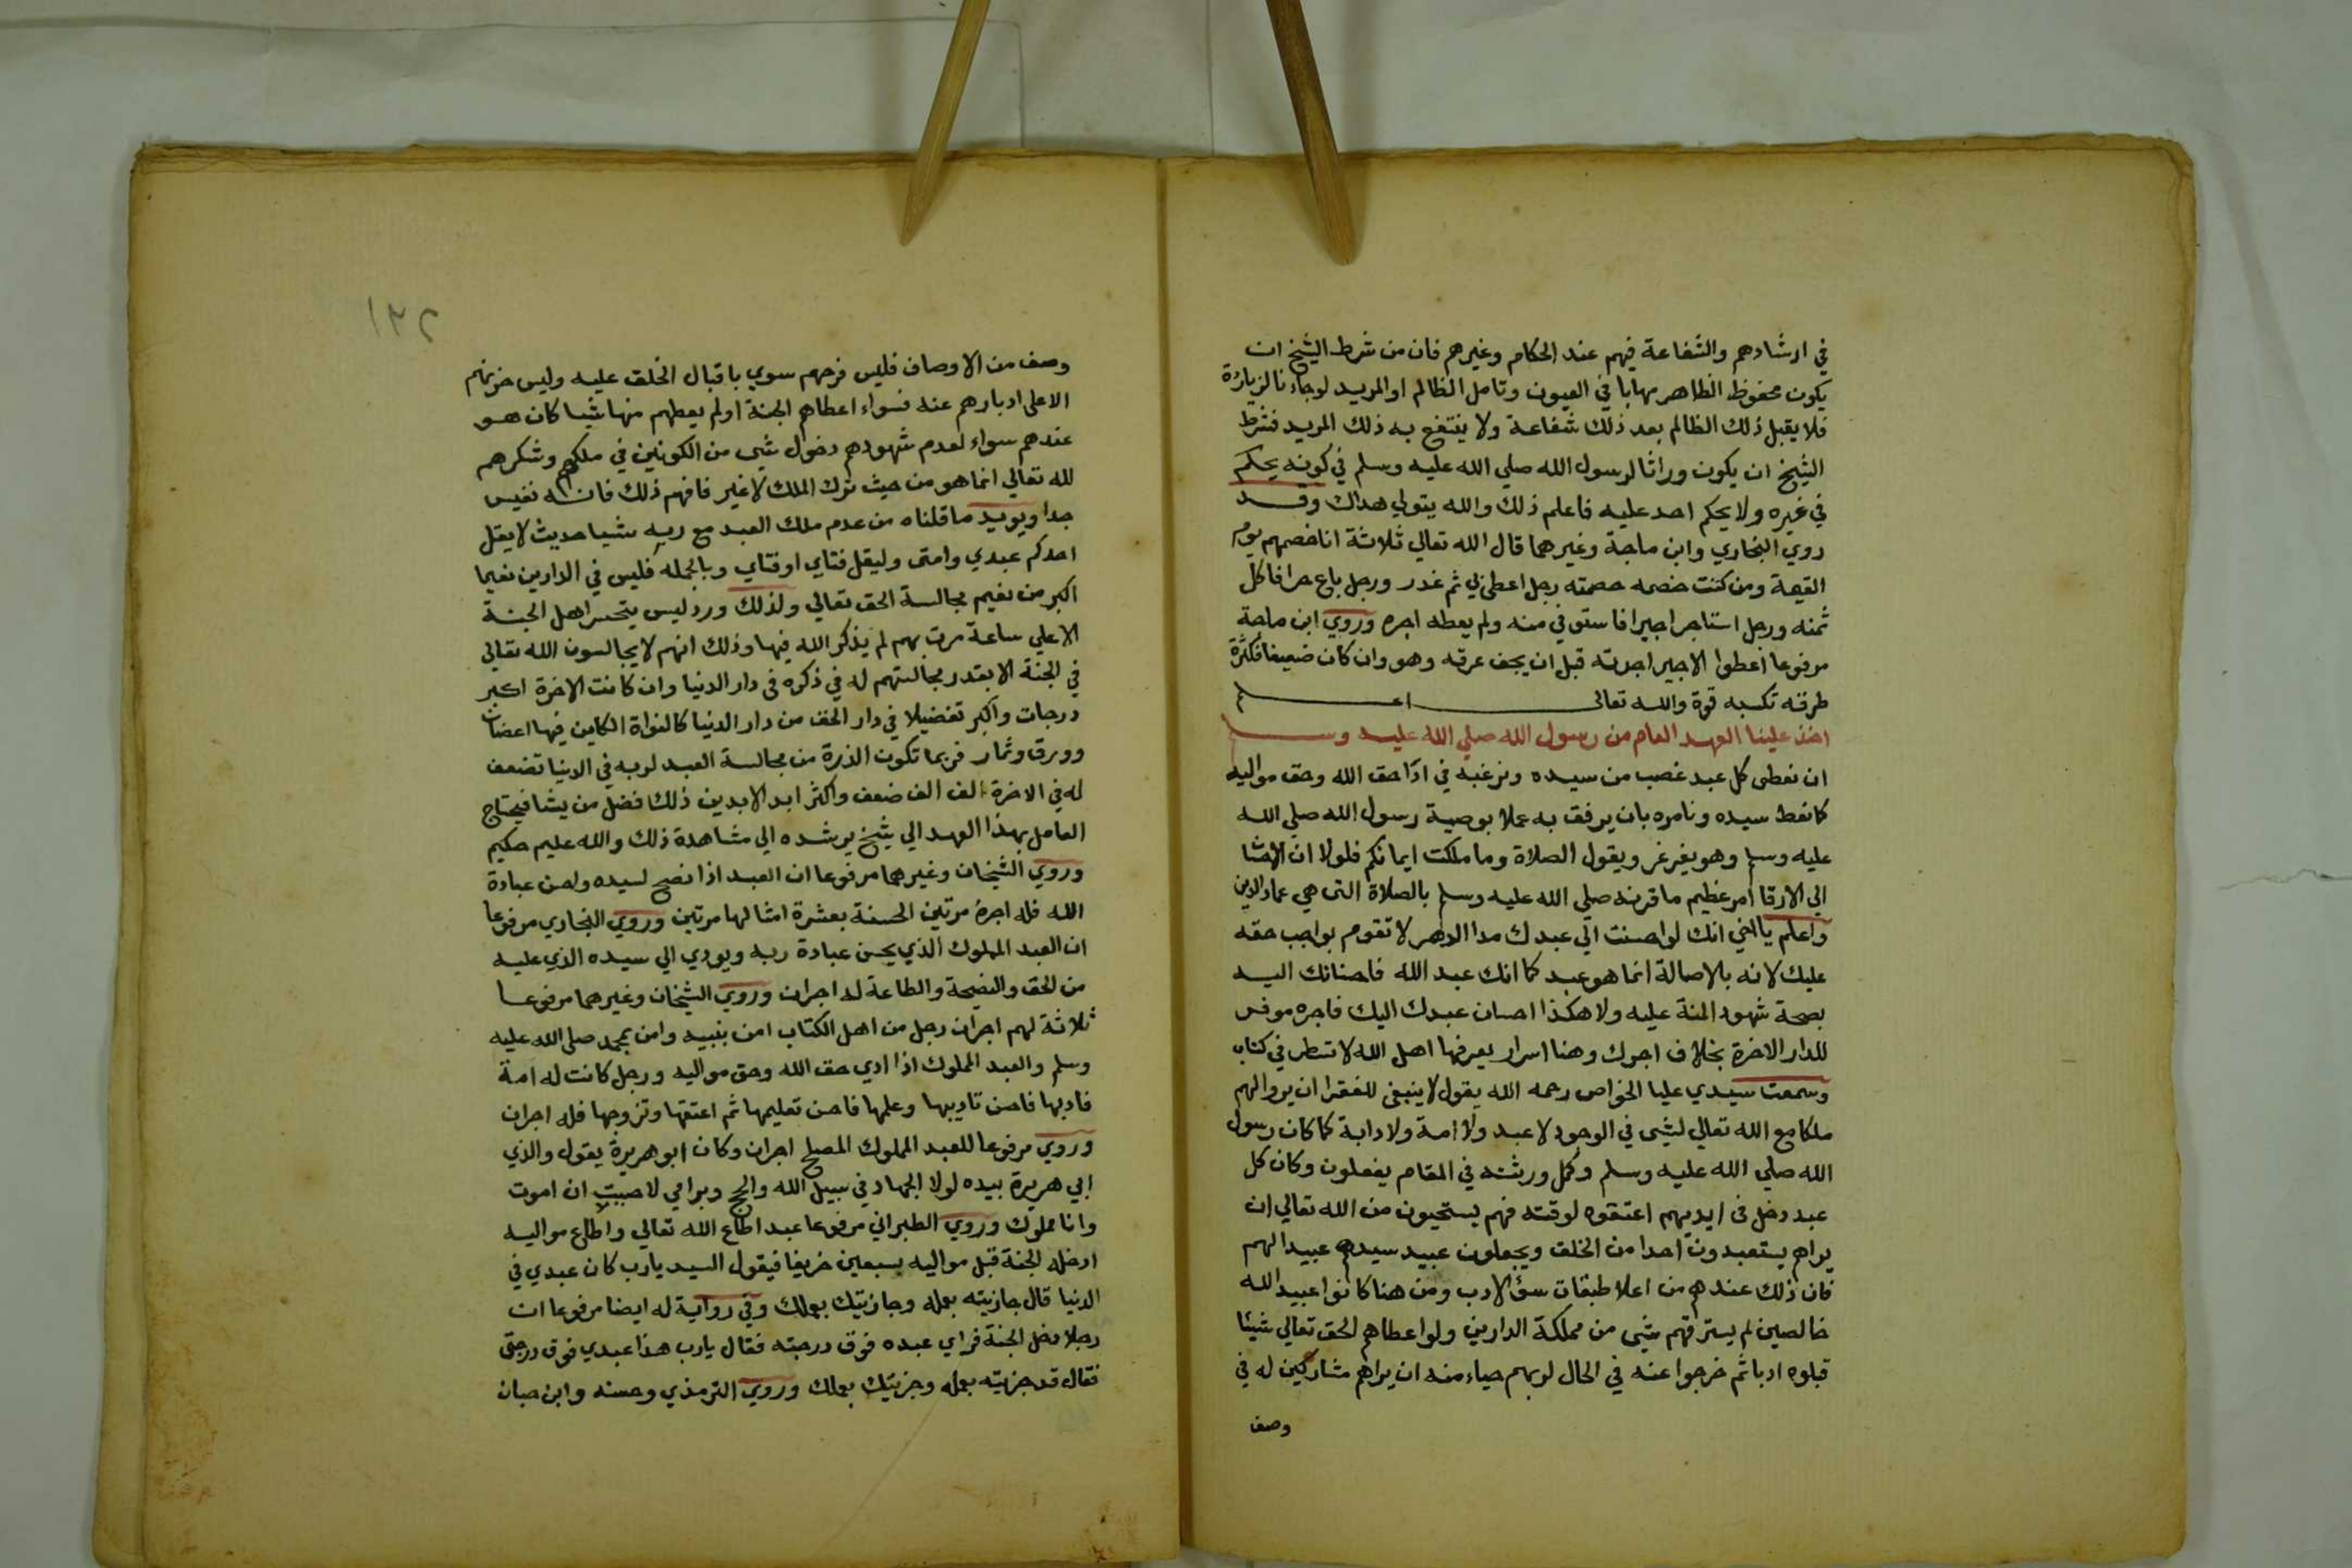 في ارشادهم والشفاعة فيهم عند الحكام وغيرهم فان من شرط الشيخ ان
يكون محفوظ الظاهر مهابا في العيون وتامل الظالم او المريد لو جاءنا لزيارة
فلا يقبل ذلك الظالم بعد ذلك شفاعة ولا ينتفع به ذلك المريد فشرط
الشيخ ان يكون وراثا لرسول الله صلي الله عليه وسلم في كونه يحكم
في غيره ولا يحكم احد عليه فاعلم ذلك والله يتولي هداك وقد
روي البخاري وابن ماجة وغيرهما قال الله تعالي ثلاثة انا خصمهم يوم
القيمة ومن كنت خصمه خصمته رجل اعطي بي ثم غدر ورجل باع حرا فاكل
ثمنه ورجل استاجر اجيرا فاستوفي منه ولم يعطه اجره وروي ابن ماجة
مرفوعا اعطوا الاجير اجرته قبل ان يجف عرقه وهو وان كان ضعيفا فكثرة
طرقه تكسبه قوة والله تعالى اعلم
اخذ علينا العهد العام من رسول الله صلي الله عليه وسلم
ان نعطى كل عبد غصب من سيده ونرغبه في اداء حق الله وحق مواليه
كما نعظ سيده ونامره بان يرفق به عملا بوصية رسول الله صلي الله
عليه وسلم وهو يغرغر ويقول الصلاة وما ملكت ايمانكم فلولا ان
الي الارقا امر عظيم ما قرنه صلي الله عليه وسلم بالصلاة التى هي عماد الدين
واعلم يا اخي انك لو احسنت الي عبدك مدا الدهر لا تقوم بواجب حقه
عليك لانه بالاصالة انما هو عبد كما انك عبد الله فاحسانك اليه
بصحة شهود المنة عليه ولا هكذا احسان عبدك اليك فاجره موفر
للدار الاخرة بخلاف اجرك وهنا اسرار يعرفها اهل الله لا تسطر في كتاب
وسمعت سيدي عليا الخواص رحمه الله يقول لا ينبغى للفقرا ان يروا لهم
ملكا مع الله تعالي لشى في الوجود لا عبد ولا امة ولا دابة كما كان رسول
الله صلي الله عليه وسلم وكمل ورثته في المقام يفعلون وكان كل
عبد دخل فى ايديهم اعتقوه لوقته فهم يستحيون من الله تعالي ان
يراهم يستعبدون احدا من الخلق ويجعلون عبيد سيدهم عبيدا لهم
فان ذلك عندهم من اعلا طبقات سؤ الادب ومن هنا كانوا عبيد الله
خالصين لم يسترقهم شى من مملكة الدارين ولو اعطاهم الحق تعالي شيئا
قبلوه ادبا ثم خرجوا عنه في الحال لربهم حياء منه ان يراهم مشاركين له في
وصف
١٣٢
وصف من الاوصاف فليس فرحهم سوي باقبال الخلق عليه وليس حزنهم
الا على ادبارهم عنه فسواء اعطاهم الجنة او لم يعطهم منها شيا كان هو
عندهم سواء لعدم شهودهم دخول شيى من الكونين في ملكهم وشكرهم
لله تعالي انما هو من حيث ترك الملك لا غير فافهم ذلك فانه نفيس
جدا ويويد ما قلناه من عدم ملك العبد مع ربه شيا حديث لا يقل
احدكم عبدي وامتى وليقل فتاي او فتاي وبالجمله فليس في الدارين نعيما
اكبر من نعيم مجالسة الحق تعالي ولذلك ورد ليس يتحسر اهل الجنة
الا علي ساعة مرت بهم لم يذكر الله فيها وذلك انهم لا يجالسون الله تعالى
في الجنة الا بقدر مجالستهم له في ذكره فى دار الدنيا وان كانت الاخرة اكبر
درجات واكبر تفضيلا في دار الحق من دار الدنيا كالنواة الكاين فيها اغصان
وورق وثمار فربما تكون الذرة من مجالسة العبد لربه في الدنيا تضعف
له في الاخرة الف الف ضعف واكثر ابد الابدين ذلك فضل من يشا فيحتاج
العامل بهذا العهد الي شيخ يرشده الي مشاهدة ذلك والله عليم حكيم
وروي الشيخان وغيرهما مرفوعا ان العبد اذا نصح لسيده واحسن عبادة
الله فله اجره مرتين الحسنة بعشرة امثالها مرتين وروي البخاري مرفوعا
ان العبد المملوك الذي يحسن عبادة ربه ويودي الي سيده الذي عليه
من الحق والنصيحة والطاعة له اجران وروي الشيخان وغيرهما مرفوعا
ثلاثة لهم اجران رجل من اهل الكتاب امن بنبيه وامن بمحمد صلى الله عليه
وسلم والعبد المملوك اذا ادي حق الله وحق مواليه ورجل كانت له امة
فادبها فاحسن تاديبها وعلمها فاحسن تعليمها ثم اعتقها وتزوجها فله اجران
وروي مرفوعا للعبد المملوك المصلح اجران وكان ابو هريرة يقول والذي
ابي هريرة بيده لولا الجهاد في سبيل الله والحج وبر امي لاحببت ان اموت
وانا مملوك وروي الطبراني مرفوعا عبد اطاع الله تعالي واطاع مواليه
ادخله الجنة قبل مواليه بسبعين خريفا فيقول السيد يارب كان عبدي في
الدنيا قال جازيته بعمله وجازيتك بعملك وفي رواية له ايضا مرفوعا ان
رجلا دخل الجنة فراي عبده فوق درجته فقال يارب هذا عبدي فوق درجتى
فقال قد جزيته بعمله وجزيتك بعملك وروي الترمذي وحسنه وابن حبان